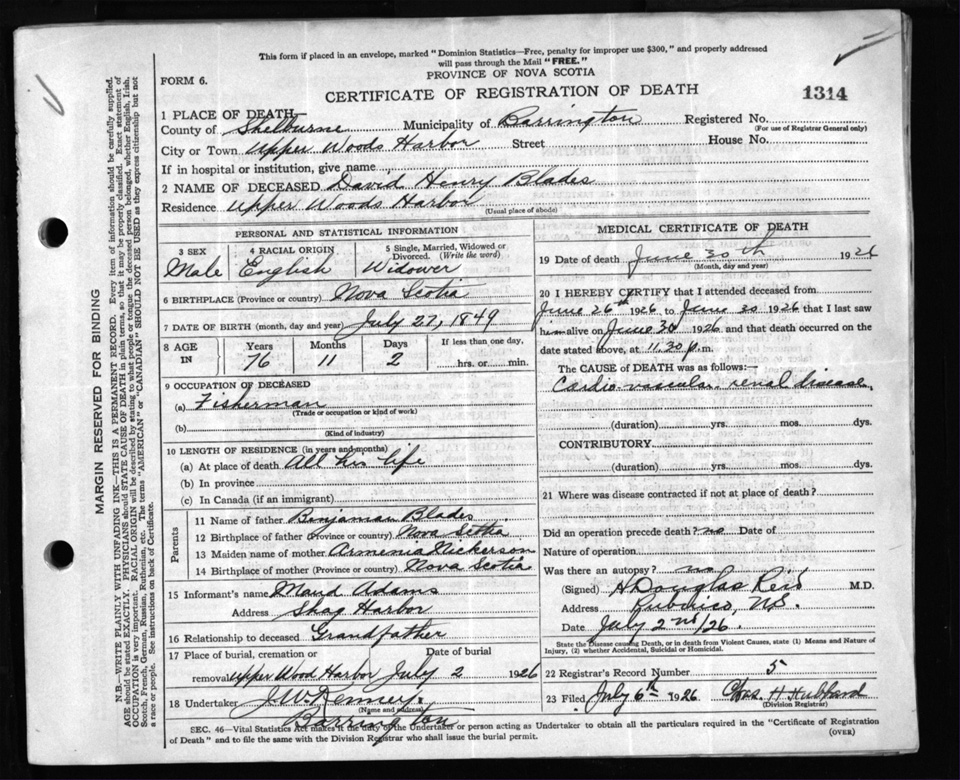 This form if placed in an envelope, marked "Dominion Statistics—Free, penalty for improper use $300," and properly addressed
will pass through the Mail "FREE."
PROVINCE OF NOVA SCOTIA
FORM 6.
CERTIFICATE OF REGISTRATION OF DEATH
1314
1 PLACE OF DEATH
County of Shelburne Municipality of Barrington Registered No.
(For use of Registrar General only)
City or Town Upper Woods Harbor Street House No.
If in hospital or institution, give name
2 NAME OF DECEASED David Henry Blades
Residence Upper Woods Harbor
(Usual place of abode)
PERSONAL AND STATISTICAL INFORMATION
3 SEX 4 RACIAL ORIGIN 5 Single, Married, Widowed or
Divorced. (Write the word)
Male English Widower
6 BIRTHPLACE (Province or country) Nova Scotia
7 DATE OF BIRTH (month, day and year) July 27, 1849
8 AGE IN Years Months Days If less than one day,
76 11 2 hrs. or min.
9 OCCUPATION OF DECEASED
(a) Fisherman
(Trade or occupation or kind of work)
(b)
(Kind of industry)
10 LENGTH OF RESIDENCE (in years and months)
(a) At place of death All his life
(b) In province
(c) In Canada (if an immigrant)
Parents
11 Name of father Benjaman Blades
12 Birthplace of father (Province or country) Nova Scotia
13 Maiden name of mother Armenia Nickerson
14 Birthplace of mother (Province or country) Nova Scotia
15 Informant's name Maud Adams
Address Shag Harbor
16 Relationship to deceased Grandfather
17 Place of burial, cremation or Date of burial
removal Upper Wood Harbor July 2 1926
18 Undertaker J W Kenney
(Name and address)
Barrington
MEDICAL CERTIFICATE OF DEATH
19 Date of death June 30 th 1926
(Month, day and year)
20 I HEREBY CERTIFY that I attended deceased from
June 26th 1926 to June 30 1926 that I last saw
him alive on June 30 1926 and that death occurred on the
date stated above, at 11.30 p.m.
The CAUSE of DEATH was as follows:—
Cardio-vascular renal disease
(duration) yrs. mos. dys.
CONTRIBUTORY.
(duration) yrs. mos. dys.
21 Where was disease contracted if not at place of death?
Did an operation precede death? no Date of
Nature of operation
Was there an autopsy? no
(Signed) H Douglas Reid M.D.
Address Pubnico, N.S.
Date July 2nd/26.
State the Disease causing Death, or in death from Violent Causes, state (1) Means and Nature of
Injury, (2) whether Accidental, Suicidal or Homicidal.
22 Registrar's Record Number 5
23 Filed July 6th 1926 Chas. H Hubbard
(Division Registrar)
SEC. 46—Vital Statistics Act makes it the duty of the Undertaker or person acting as Undertaker to obtain all the particulars required in the "Certificate of Registration
of Death" and to file the same with the Division Registrar who shall issue the burial permit.
(OVER)
MARGIN RESERVED FOR BINDING
N.B.—WRITE PLAINLY WITH UNFADING INK—THIS IS A PERMANENT RECORD. Every item of information should be carefully supplied.
AGE should be stated EXACTLY. PHYSICIANS should STATE CAUSE OF DEATH in plain terms, so that it may be properly classified. Exact statement of
OCCUPATION is very important. RACIAL ORIGIN will be described by stating to what people or tongue the deceased person belonged, whether English, Irish,
Scotch, French, German, Russian, Ruthenian, etc. The terms "AMERICAN" or "CANADIAN" SHOULD NOT BE USED as they express citizenship but not
a race or people. See instructions on back of Certificate.